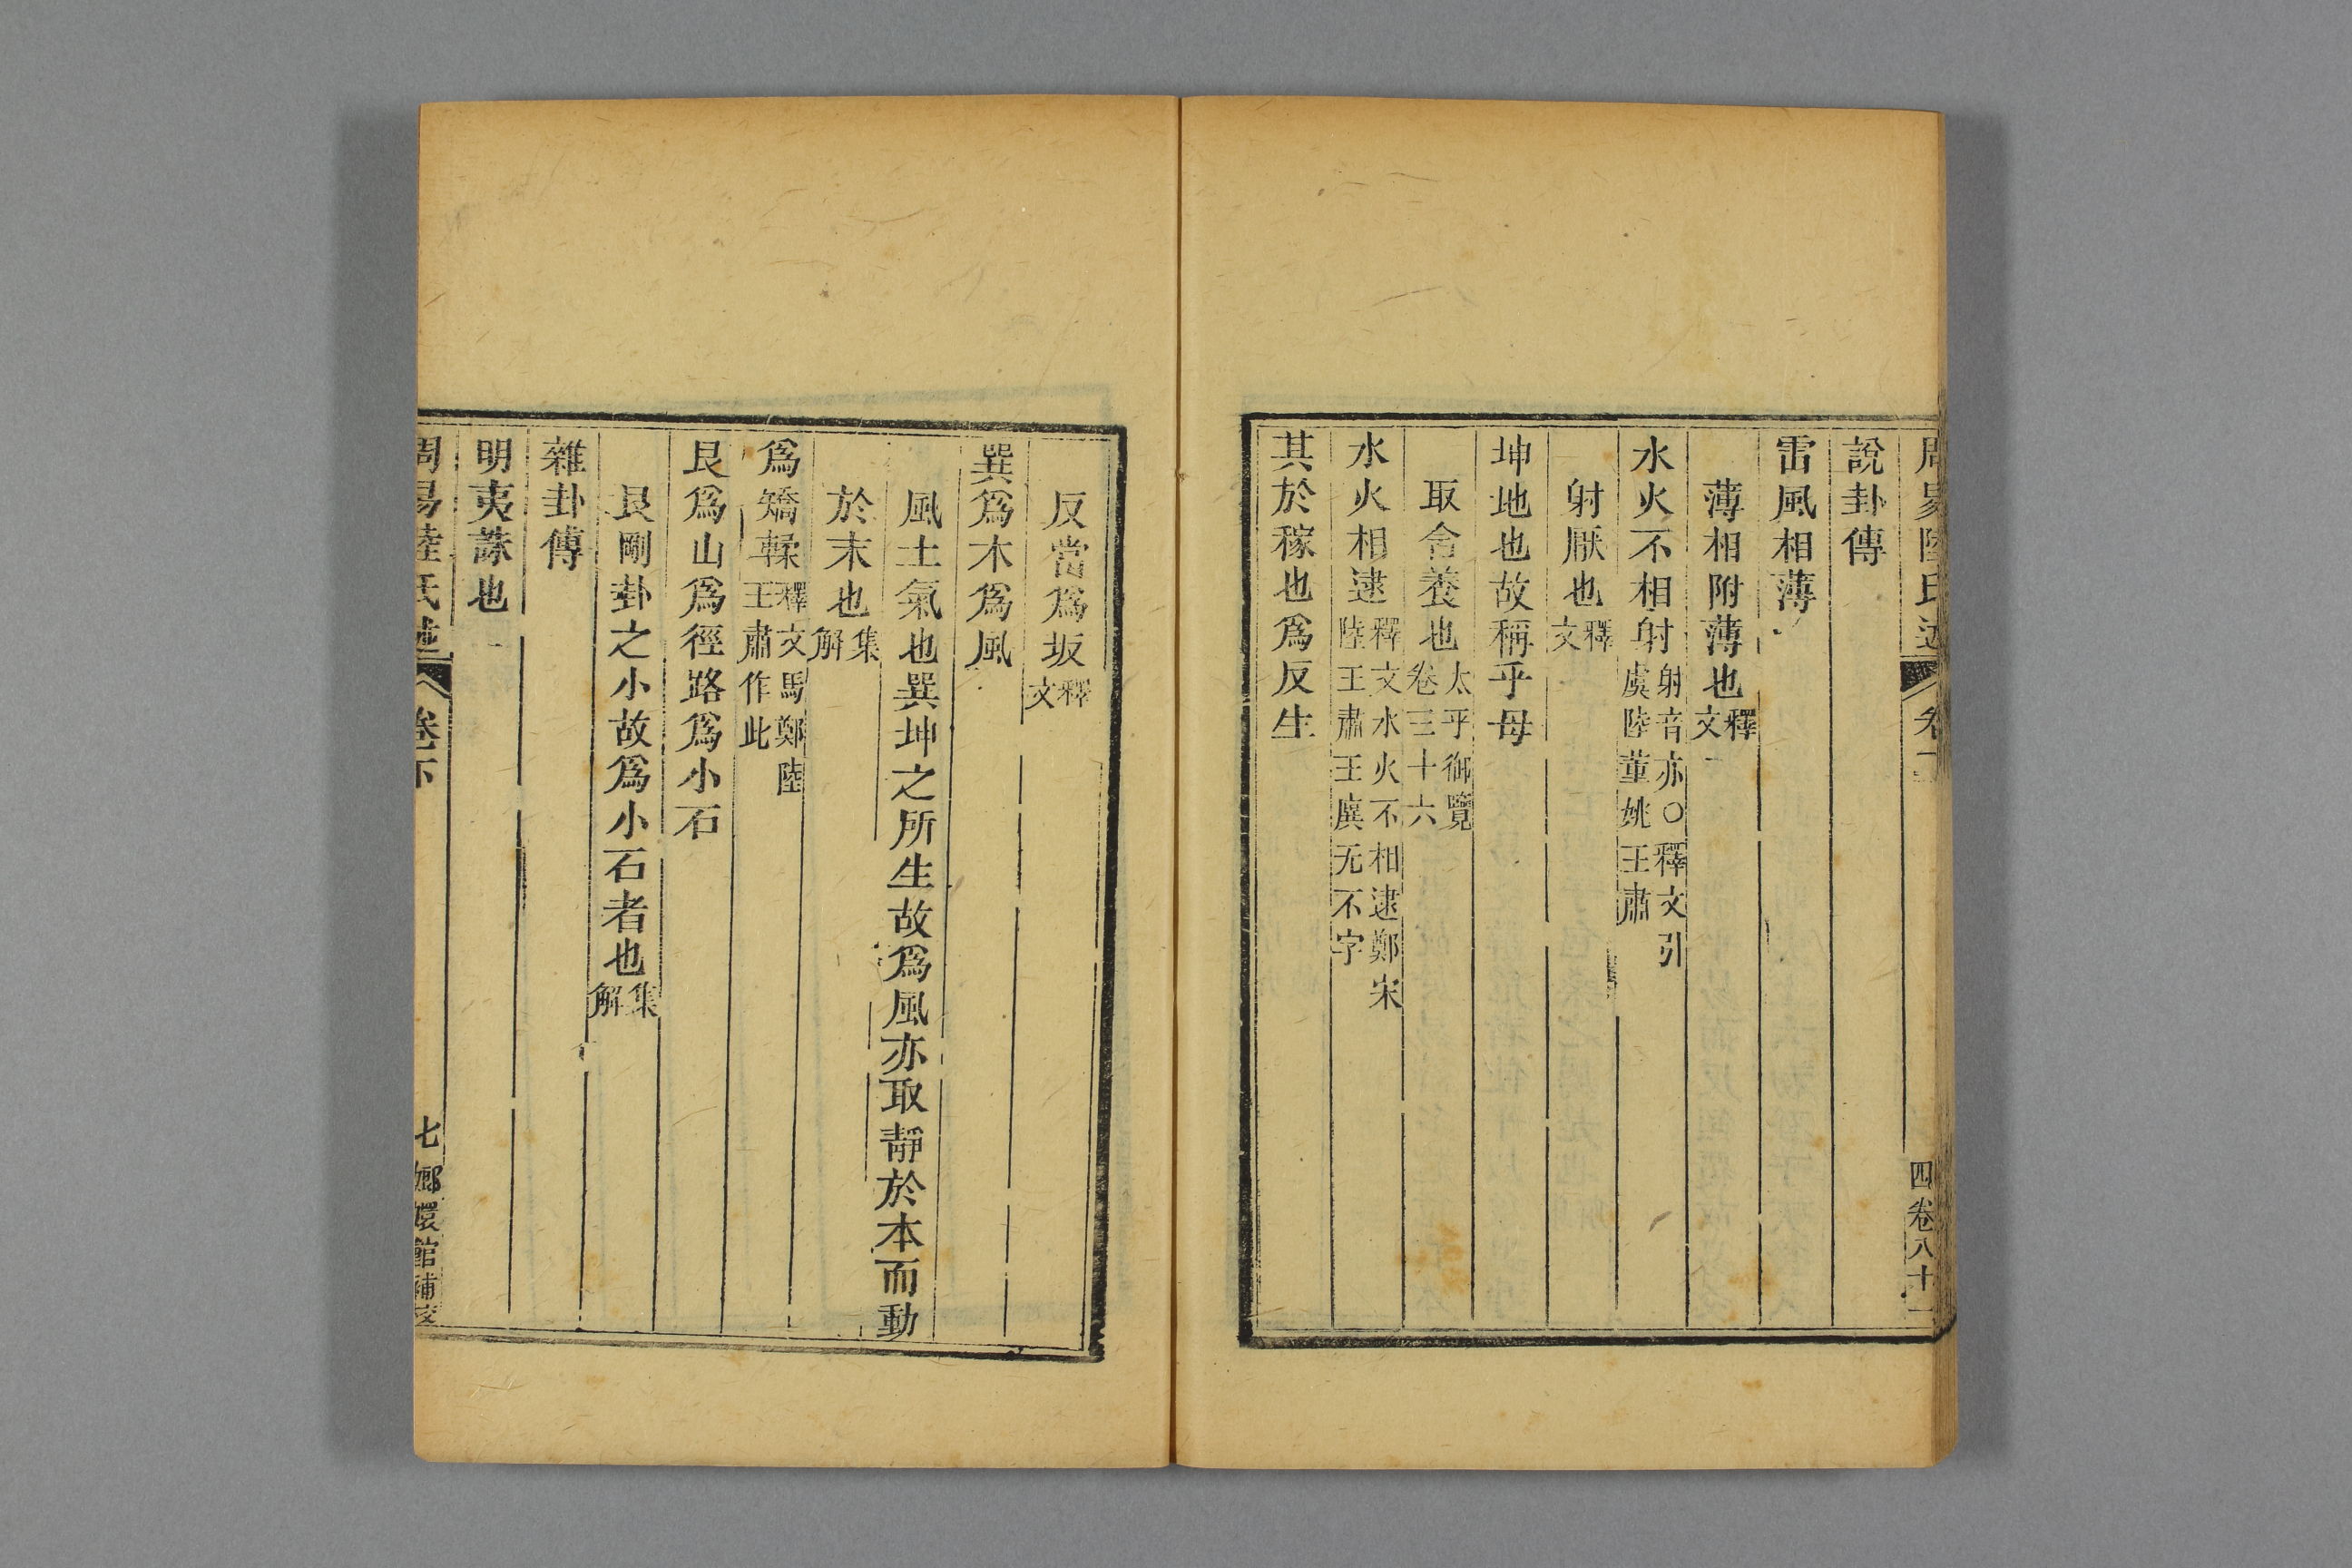 周易陸氏述 卷下 四卷八十一
說卦傳
雷風相薄
薄相附薄也釋文
水火不相射射音亦○釋文引虞陸董姚王肅
射厭也釋文
坤地也故稱乎母
取含養也太平御覽卷三十六
水火相逮釋文水火不相逮鄭宋陸王肅王廙无不字
其於稼也爲反生
反當爲坂釋文
巽爲木爲風
風土氣也巽坤之所生故爲風亦取靜於本而動
於末也集解
爲矯輮釋文馬鄭陸王肅作此
艮爲山爲徑路爲小石
艮剛卦之小故爲小石者也集解
雜卦傳
明夷誅也
周易陸氏述 卷下 七 嫏嬛館補校